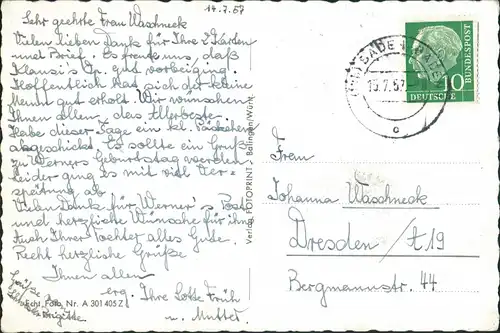 14.7.57
Sehr geehrte Frau Waschneck
Vielen lieben Dank für Ihre 2 Karten
und Brief. Es freute uns, daß
Klausi's Op. gut vorbeiging.
Hoffentlich hat sich der kleine
Mann gut erholt. Wir wünschen
Ihnen allen des Allerbeste.
Habe dieser Tage ein kl. Päckchen
abgeschickt. Es sollte ein Gruß
zu Werners Geburtstag werden
leider ging es mit viel Ver-
spätung ab
Vielen Dank für Werner's Post
und herzliche Wünsche für ihn.
Auch Ihrer Tochter alles Gute.
Recht herzliche Grüße
Ihnen allen
erg. Ihre Lotte Früh
u. Mutter
Grüße
Brigitte
Echt Foto Nr. A 301 405 Z
Verlag FOTOPRINT - Balingen/Württ.
BADEN-BADEN
15.7.57
c
10
DEUTSCHE
BUNDESPOST
Frau
Johanna Waschneck
Dresden / A19
Bergmannstr. 44